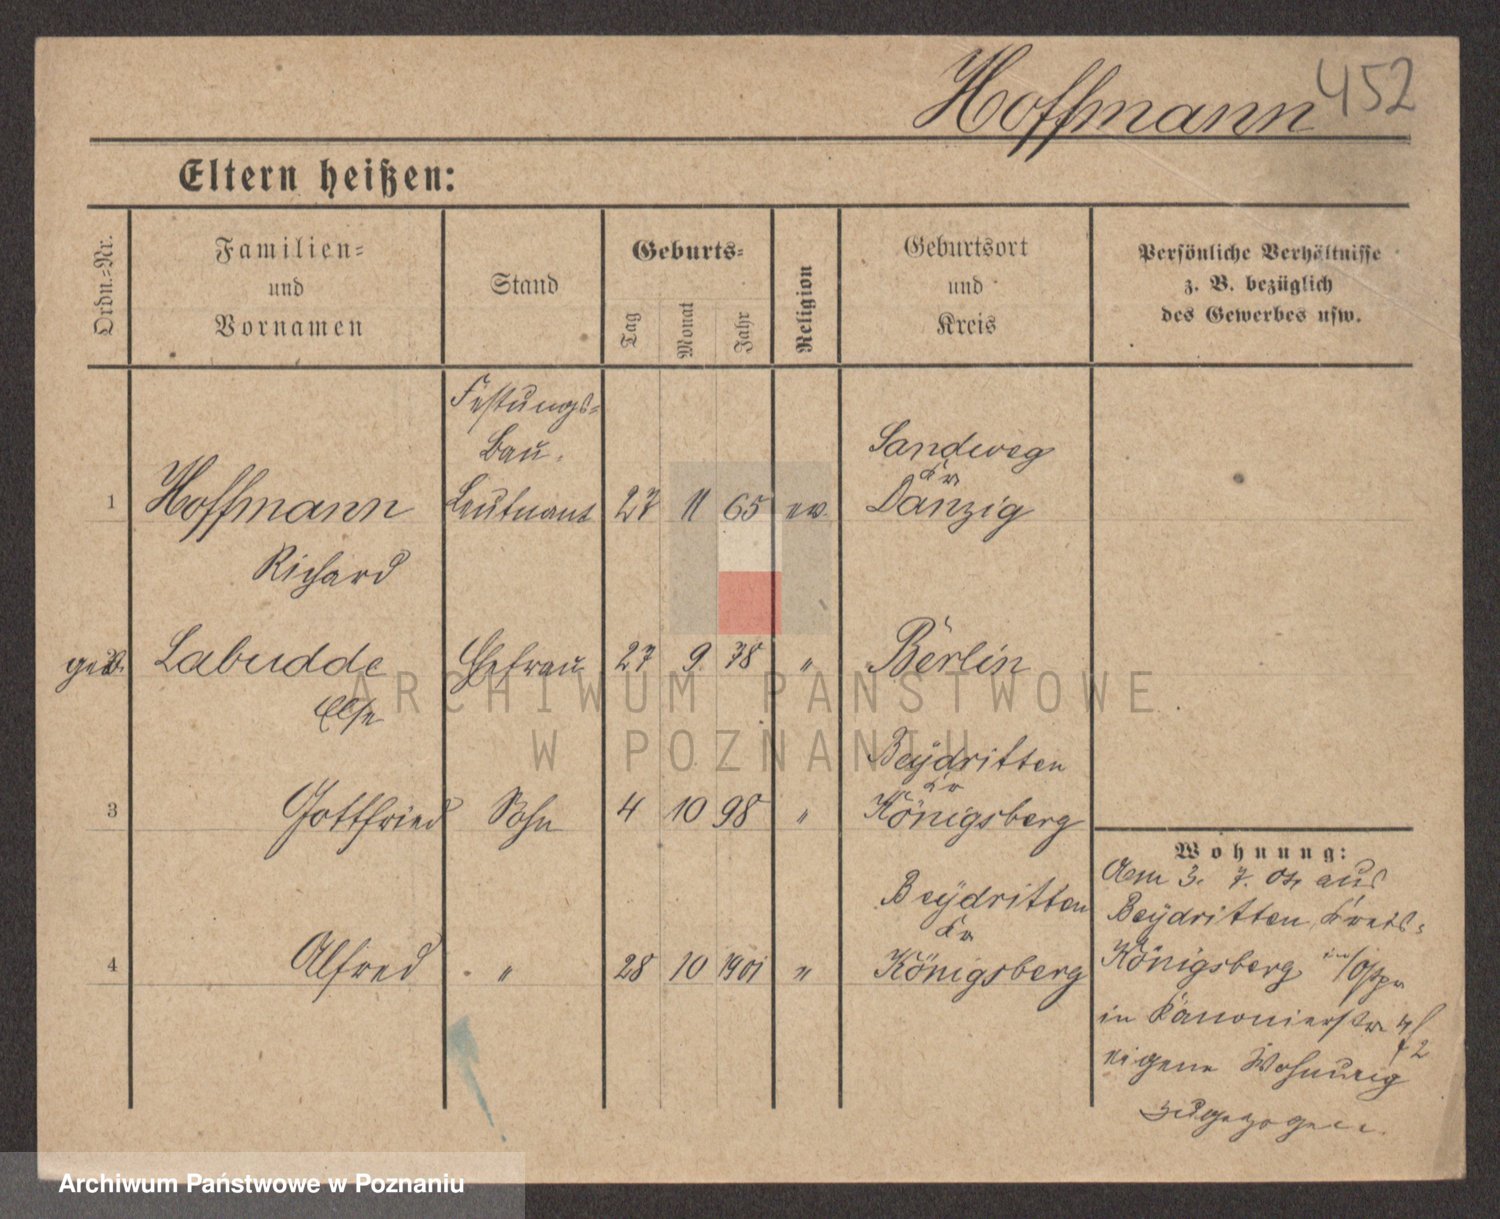 Hoffmann 452
Eltern heißen:
Ordn.-Nr.
Familien-
und
Vornamen
Stand
Geburts-
Tag
Monat
Jahr
Religion
Geburtsort
und
Kreis
Persönliche Verhältnisse
z. B. bezüglich
des Gewerbes usw.
Festungs-
Bau-
1 Hoffmann Leutnant 27 11 65 ev.
Richard
Sandweg
Kr
Danzig
geb. Labudde Ehefrau 27 9. 78 " Berlin
Else
Beydritten
Kr
3 Gottfried Sohn 4 10 98 " Königsberg
Beydritten
Kr
4 Alfred " 28 10 1901 " Königsberg
Wohnung:
Am 3. 7. aus
Beydritten, Kreis-
Königsberg i/Ostpr
in Kanonierstr
eigene Wohnung
zugezogen.
ARCHIWUM PAŃSTWOWE
W POZNANIU
Archiwum Państwowe w Poznaniu